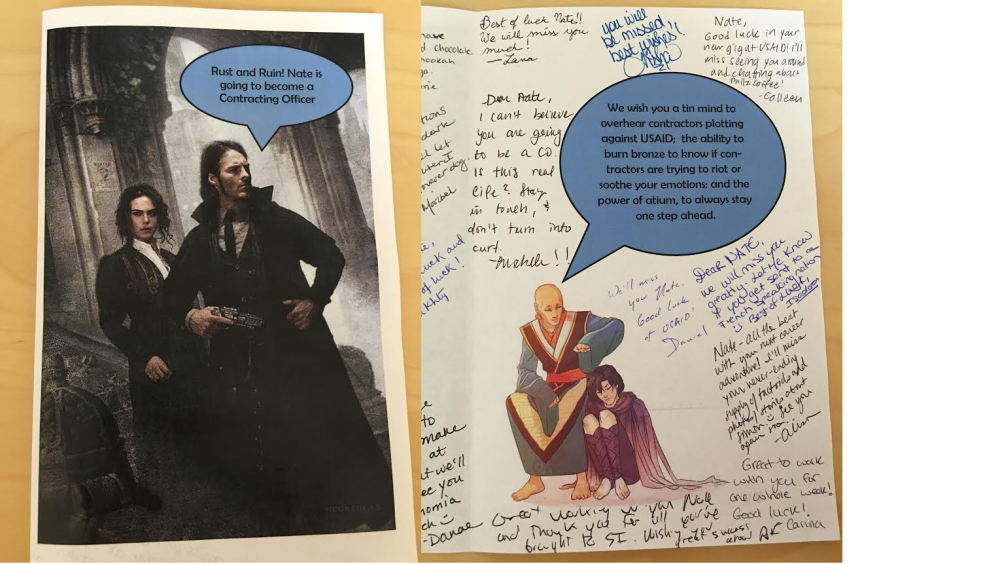 Rust and Ruin! Nate is
going to become a
Contracting Officer
Best of luck Nate!!
We will miss you
much!
-Lana
you will
be missed!!
best wishes!
Nate,
Good luck in your
new gig at USAID! I'll
miss seeing you around
and chatting about
Philz Coffee!
-Colleen
chocolate
-Dear Nate,
I can't believe
you are going
to be a CO.
Is this real
life? Stay
in touch, &
don't turn into
curt.
-Michelle!!
We wish you a tin mind to
overhear contractors plotting
against USAID; the ability to
burn bronze to know if con-
tractors are trying to riot or
soothe your emotions; and the
power of atium, to always stay
one step ahead.
dark
let
never dog.
Maribel
luck and
of luck!
We'll miss
you Nate.
Good luck
at USAID!
Daniel
Dear NATE,
we will miss you
greatly. Let me know
if you get sent to a
French speaking nation
Best of Luck,
Nate - all the best
with your next career
adventure! I'll miss
your never-ending
supply of factoids and
photos/stories about
Simon. See you
again soon.
to
make
at
we'll
see you
-Danae
Great to work
with you for
one whole week!
Good luck!
Carina
Great working w you Nate
and Thank you for all you've
brought to SI. Wishing you
great success
ahead AK